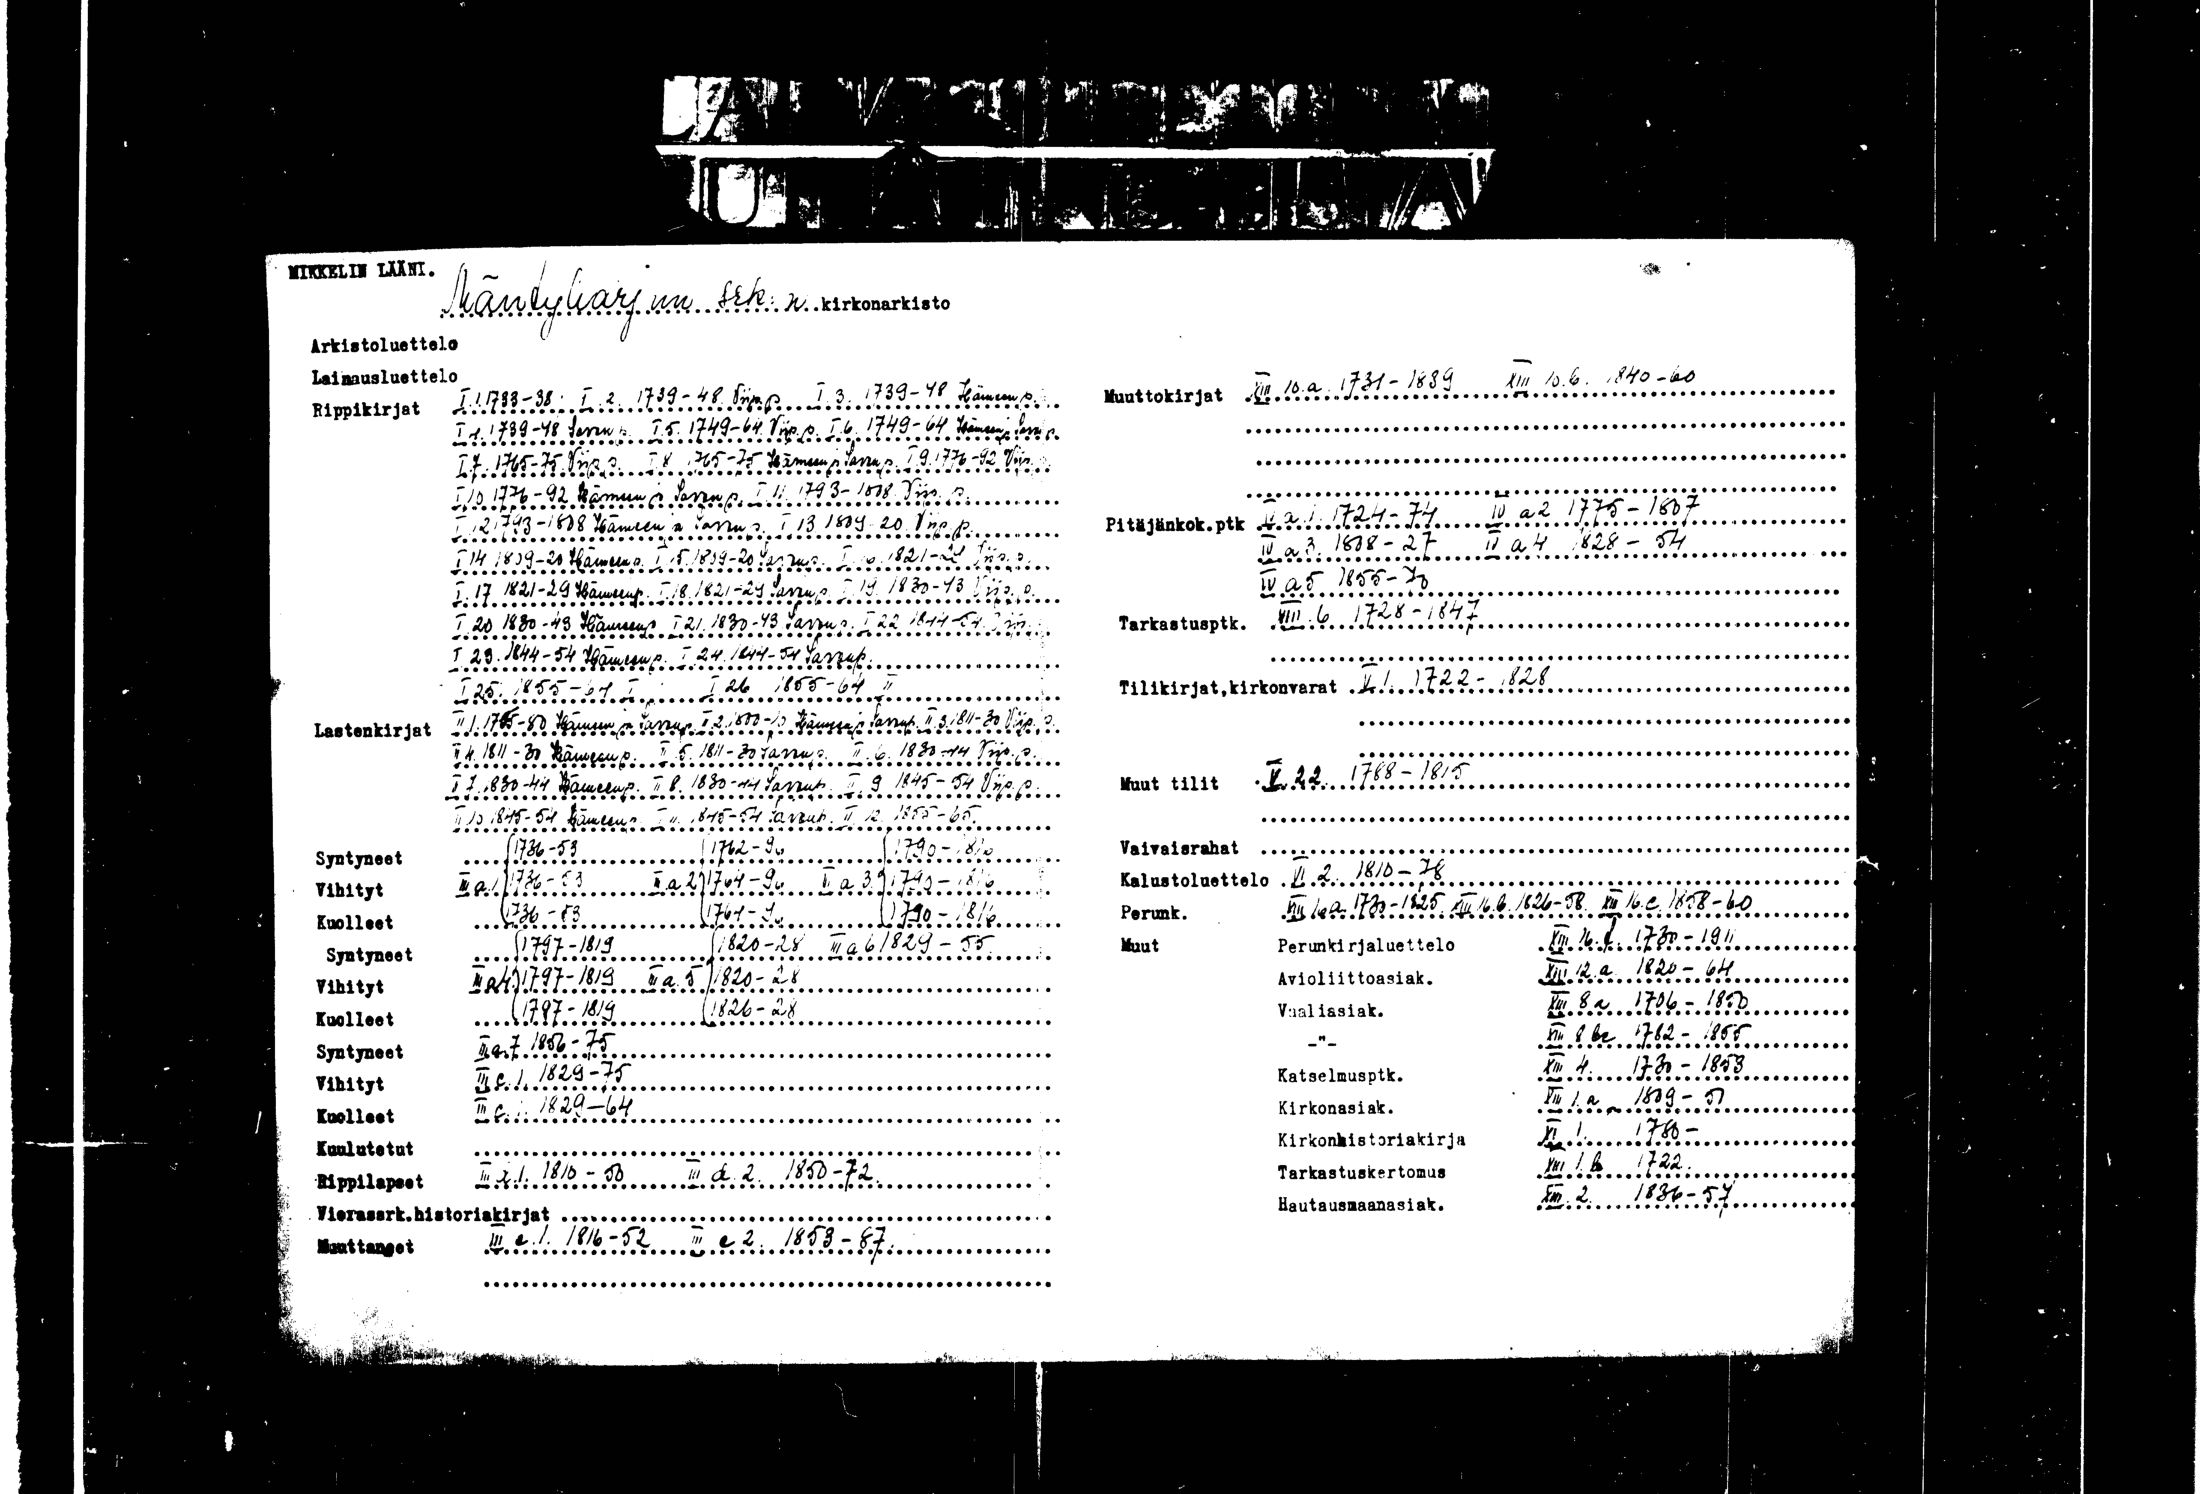 MIKKELIN LÄÄNI.
Mäntyharjun srk:n kirkonarkisto
Arkistoluettelo
Lainausluettelo
Rippikirjat I.1.1733-38. I.2. 1739-48 Viip.p. I.3. 1739-48 Hämeen p.
I.4. 1739-48 Savon p. I.5. 1749-64 Viip.p. I.6. 1749-64 Hämeen ja Savon p.
I.7. 1765-75 Viip.p. I.8. 1765-75 Hämeen ja Savon p. I.9. 1776-92 Viip.p.
I.10 1776-92 Hämeen ja Savon p. I.11. 1793-1808 Viip.p.
I.12 1793-1808 Hämeen ja Savon p. I 13 1809-20 Viip.p.
I 14 1809-20 Hämeen p. I.15. 1809-20 Savon p. 1821-29 Viip.p.
I.17 1821-29 Hämeen p. I.18. 1821-29 Savon p. I.19. 1830-43 Viip.p.
I.20 1830-43 Hämeen p. I 21. 1830-43 Savon p. I 22 1844-54 Viip.
I 23. 1844-54 Hämeen p. I 24. 1844-54 Savon p.
I 25. 1855-64 I I 26 1855-64 II
Lastenkirjat II 1. 1765-80 Hämeen ja Savon p. II 2. 1800-10 Hämeen ja Savon p. II.3. 1811-30 Viip.p.
II 4. 1811-30 Hämeen p. II.5. 1811-30 Savon p. II.6. 1830-44 Viip.p.
II 7. 1830-44 Hämeen p. II 8. 1830-44 Savon p. II.9 1845-54 Viip.p.
II 10 1845-54 Hämeen p. II 11. 1845-54 Savon p. II.12. 1855-65.
Syntyneet 1736-53 1762-90 1790-1816
Vihityt III a.1 1736-53 III a.2 1764-90 III a 3. 1790-1816
Kuolleet 1736-53 1764-90 1790-1816
Syntyneet 1797-1819 1820-28 III a 6 1829-55.
Vihityt III a 4. 1797-1819 III a.5 1820-28
Kuolleet 1797-1819 1826-28
Syntyneet III a.7 1856-75
Vihityt III c.1. 1829-75
Kuolleet III c.1. 1829-64
Kuulutetut
Rippilapset III d.1. 1810-50 III d.2. 1850-72.
Vierassrk.historiakirjat
Muuttaneet III e.1. 1816-52 III e 2. 1853-87.
Muuttokirjat XIII 10.a. 1731-1839 XIII 10.b. 1840-60
Pitäjänkok.ptk IV a.1. 1724-74 IV a 2 1775-1807
IV a 3. 1808-27 IV a 4 1828-54
IV a 5 1855-70
Tarkastusptk. VIII.6. 1728-1847
Tilikirjat,kirkonvarat V.1. 1722-1828
Muut tilit V.22. 1788-1815
Vaivaisrahat
Kalustoluettelo VI 2. 1810-78
Perunk. XIII 16a. 1730-1825. XIII 16.b. 1826-58. XIII 16.c. 1858-60
Muut Perunkirjaluettelo XIII 16. 1730-1911
Avioliittoasiak. XIII 12.a. 1820-64
Vaaliasiak. XIII 8a 1706-1850
-"- XIII 8 bc 1782-1855
Katselmusptk. XIII 4. 1730-1853
Kirkonasiak. XIII 1.a 1809-51
Kirkonhistoriakirja XI 1. 1780-
Tarkastuskertomus XIII 1.b 1722.
Hautausmaanasiak. XIII 2. 1836-57